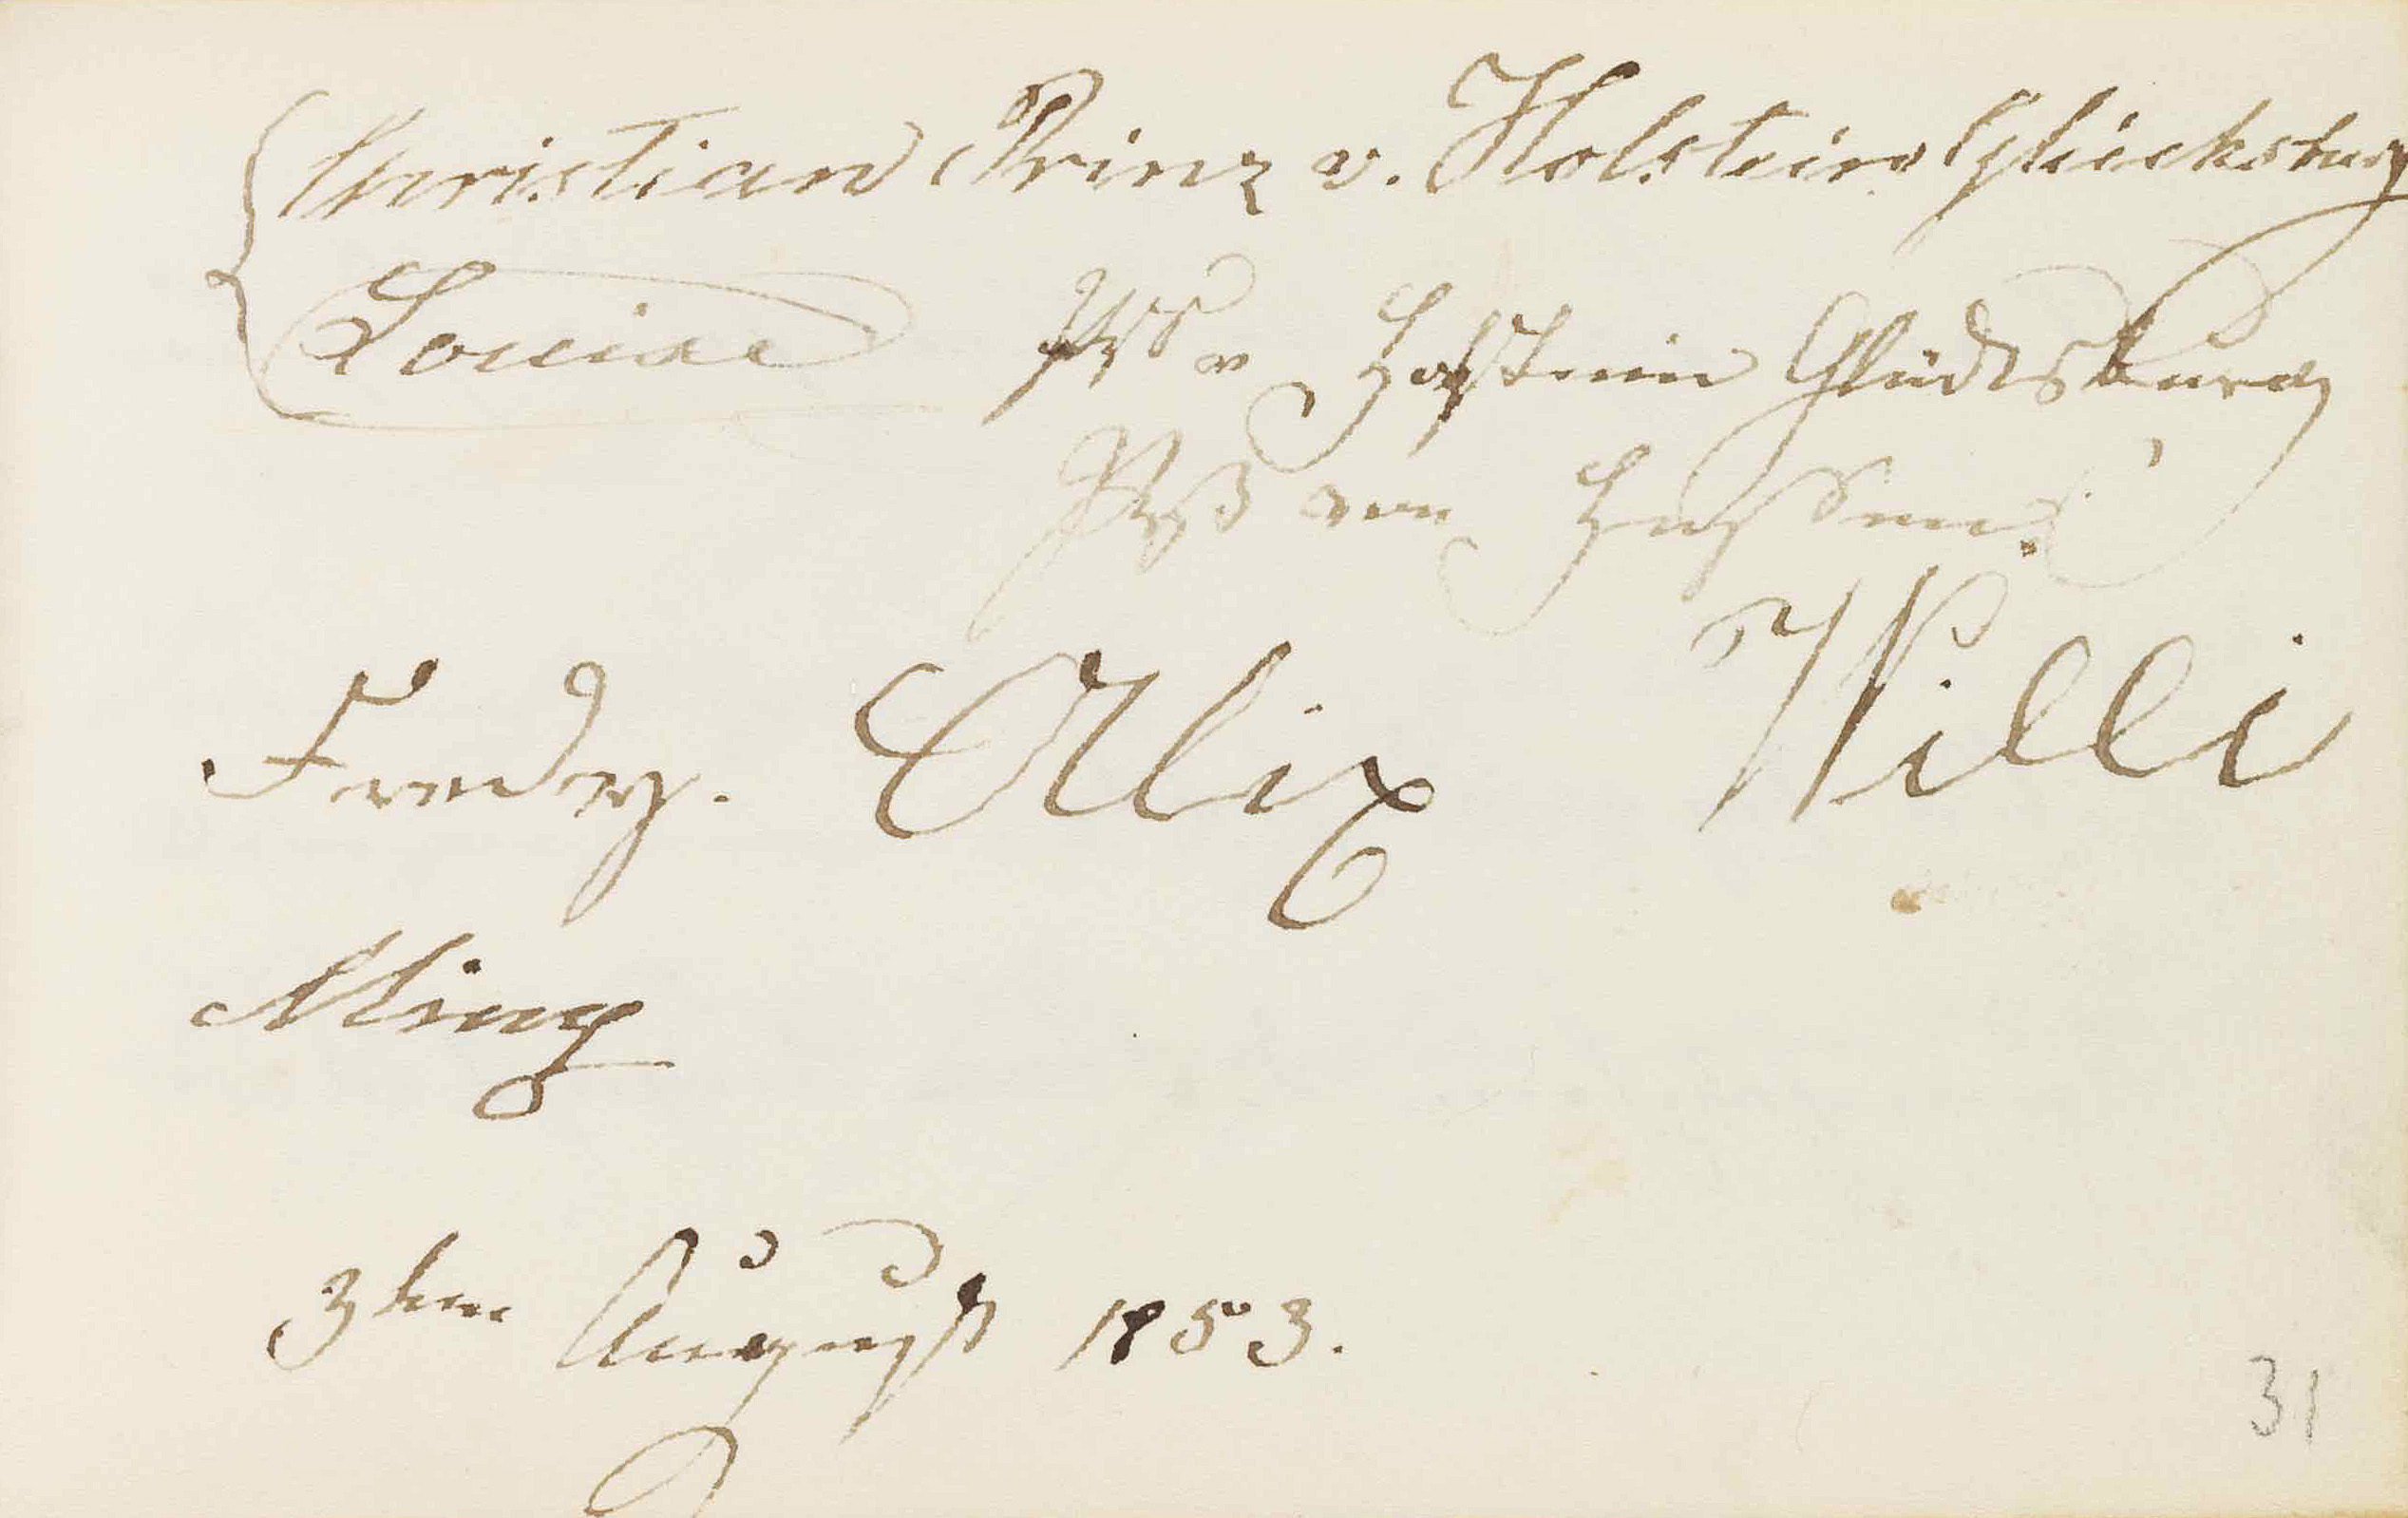 Christian Prinz v. Holstein Glücksburg
Louise Pzß v Holstein Glücksburg
Pzß von Hessen.
Fredy. Alix Willi
Miny
3ten August 1853.
31